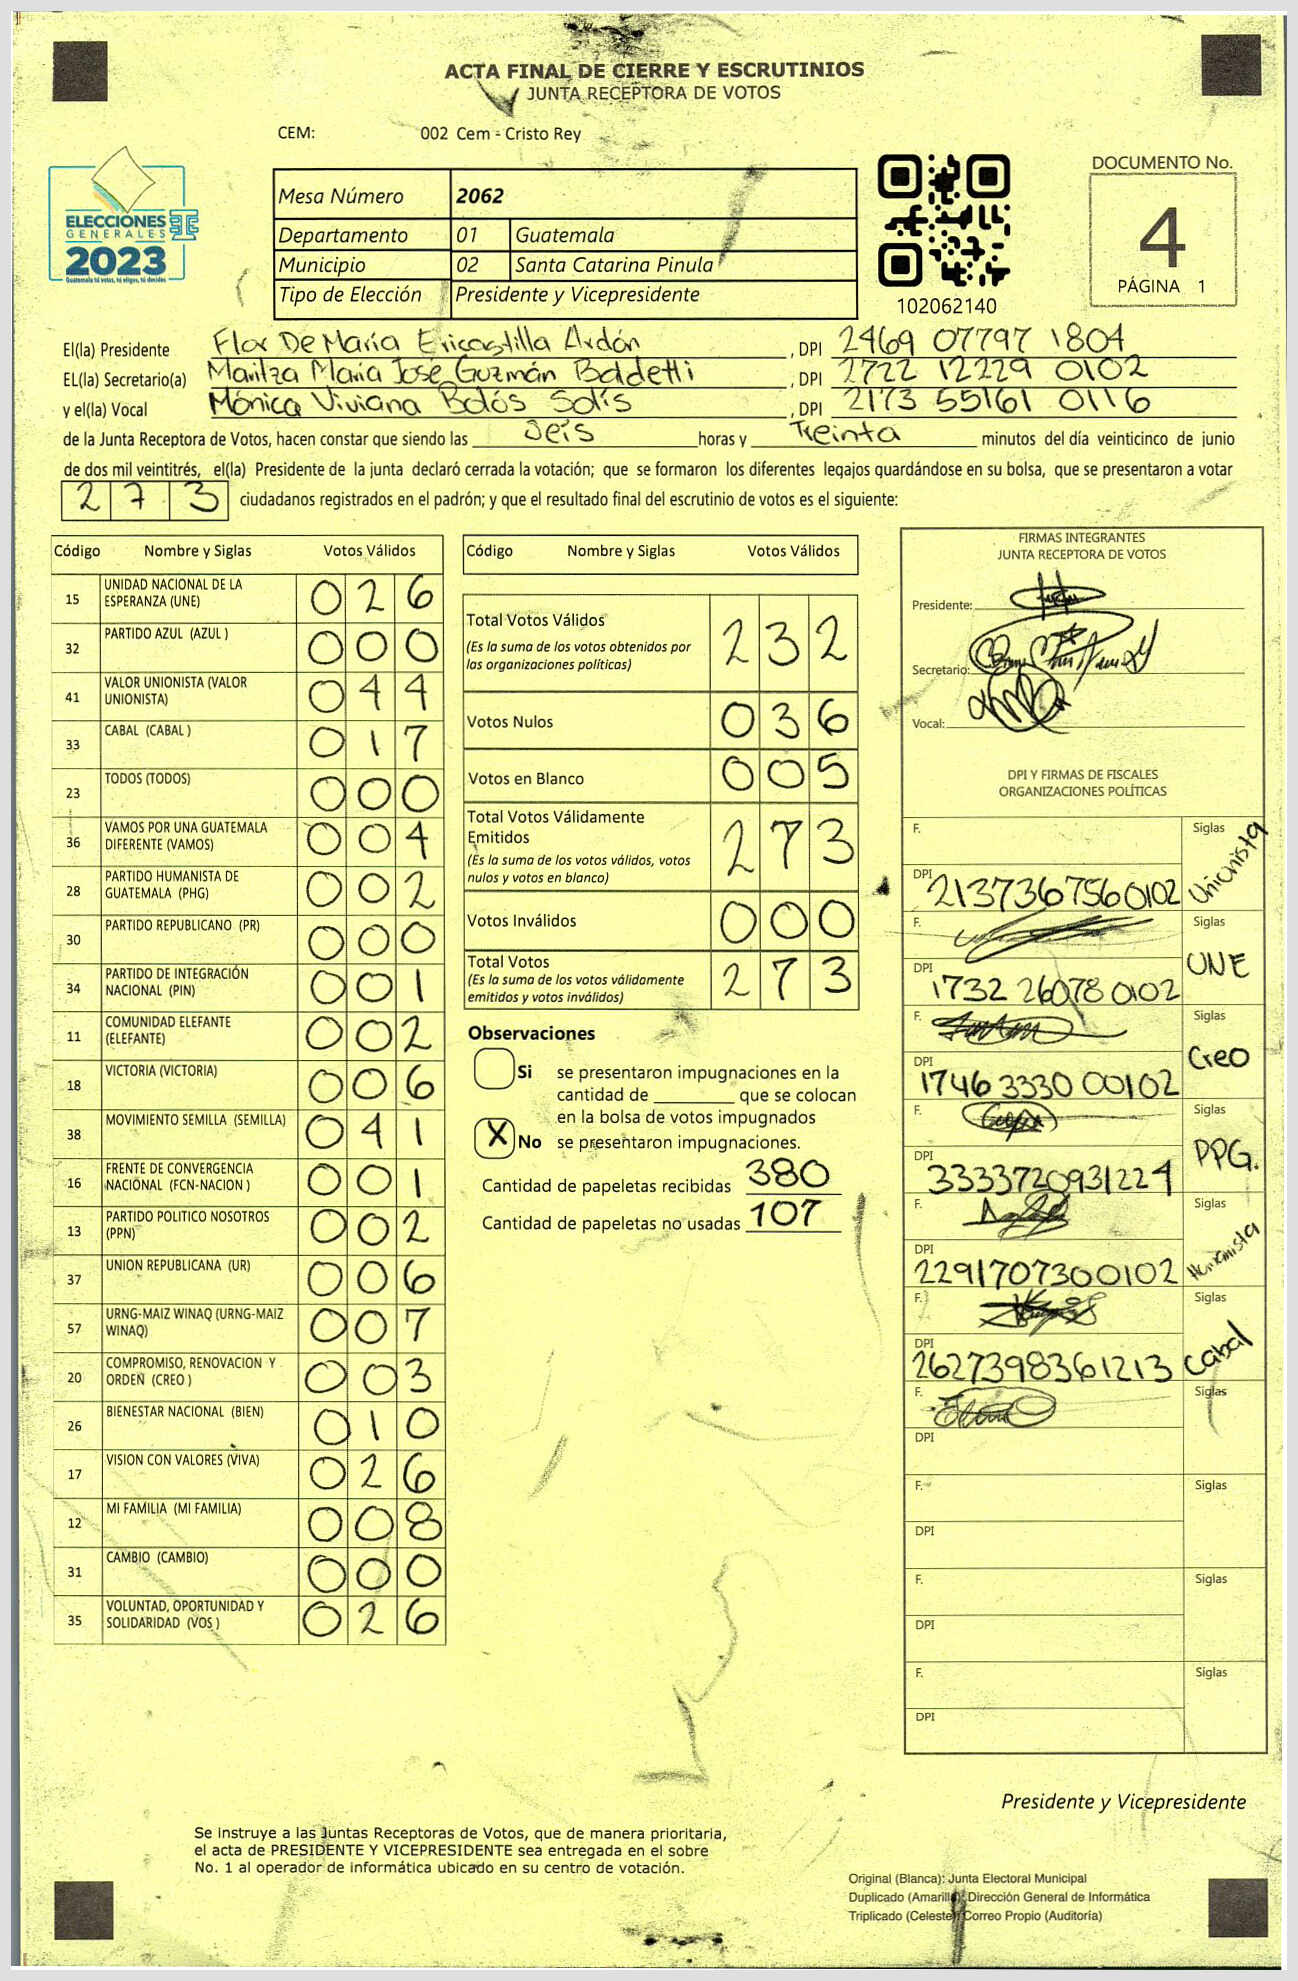 ACTA FINAL DE CIERRE Y ESCRUTINIOS
JUNTA RECEPTORA DE VOTOS
CEM: 002 Cem - Cristo Rey
ELECCIONES
GENERALES
2023
Guatemala tú votas, tú eliges, tú decides
Mesa Número 2062
Departamento 01 Guatemala
Municipio 02 Santa Catarina Pinula
Tipo de Elección Presidente y Vicepresidente
102062140
DOCUMENTO No.
4
PÁGINA 1
El(la) Presidente Flor De María Ericastilla Ardón, DPI 2469 07797 1804
EL(la) Secretario(a) Maritza María José Guzmán Baldetti, DPI 2722 12229 0102
y el(la) Vocal Mónica Viviana Bolós Solís, DPI 2173 55161 0116
de la Junta Receptora de Votos, hacen constar que siendo las Seis horas y Treinta minutos del día veinticinco de junio
de dos mil veintitrés, el(la) Presidente de la junta declaró cerrada la votación; que se formaron los diferentes legajos guardándose en su bolsa, que se presentaron a votar
273 ciudadanos registrados en el padrón; y que el resultado final del escrutinio de votos es el siguiente:
Código Nombre y Siglas Votos Válidos
15 UNIDAD NACIONAL DE LA ESPERANZA (UNE) 026
32 PARTIDO AZUL (AZUL ) 000
41 VALOR UNIONISTA (VALOR UNIONISTA) 044
33 CABAL (CABAL ) 017
23 TODOS (TODOS) 000
36 VAMOS POR UNA GUATEMALA DIFERENTE (VAMOS) 004
28 PARTIDO HUMANISTA DE GUATEMALA (PHG) 002
30 PARTIDO REPUBLICANO (PR) 000
34 PARTIDO DE INTEGRACIÓN NACIONAL (PIN) 001
11 COMUNIDAD ELEFANTE (ELEFANTE) 002
18 VICTORIA (VICTORIA) 006
38 MOVIMIENTO SEMILLA (SEMILLA) 041
16 FRENTE DE CONVERGENCIA NACIONAL (FCN-NACION ) 001
13 PARTIDO POLITICO NOSOTROS (PPN) 002
37 UNION REPUBLICANA (UR) 006
57 URNG-MAIZ WINAQ (URNG-MAIZ WINAQ) 007
20 COMPROMISO, RENOVACION Y ORDEN (CREO ) 003
26 BIENESTAR NACIONAL (BIEN) 010
17 VISION CON VALORES (VIVA) 026
12 MI FAMILIA (MI FAMILIA) 008
31 CAMBIO (CAMBIO) 000
35 VOLUNTAD, OPORTUNIDAD Y SOLIDARIDAD (VOS ) 026
Código Nombre y Siglas Votos Válidos
Total Votos Válidos 232
(Es la suma de los votos obtenidos por
las organizaciones políticas)
Votos Nulos 036
Votos en Blanco 005
Total Votos Válidamente
Emitidos 273
(Es la suma de los votos válidos, votos
nulos y votos en blanco)
Votos Inválidos 000
Total Votos 273
(Es la suma de los votos válidamente
emitidos y votos inválidos)
Observaciones
Si se presentaron impugnaciones en la
cantidad de ________ que se colocan
en la bolsa de votos impugnados
X No se presentaron impugnaciones.
Cantidad de papeletas recibidas 380
Cantidad de papeletas no usadas 107
FIRMAS INTEGRANTES
JUNTA RECEPTORA DE VOTOS
Presidente:
Secretario:
Vocal:
DPI Y FIRMAS DE FISCALES
ORGANIZACIONES POLÍTICAS
F. Siglas Unionista
DPI 2137367560102
F. Siglas UNE
DPI 1732 26078 0102
F. Siglas Creo
DPI 1746 3330 00102
F. Siglas PPG.
DPI 3333720931224
F. Siglas Humanista
DPI 2291707300102
F. Siglas Cabal
DPI 2627398361213
F. Siglas
DPI
F. Siglas
DPI
F. Siglas
DPI
F. Siglas
DPI
Presidente y Vicepresidente
Se instruye a las Juntas Receptoras de Votos, que de manera prioritaria,
el acta de PRESIDENTE Y VICEPRESIDENTE sea entregada en el sobre
No. 1 al operador de informática ubicado en su centro de votación.
Original (Blanca): Junta Electoral Municipal
Duplicado (Amarilla): Dirección General de Informática
Triplicado (Celeste): Correo Propio (Auditoría)